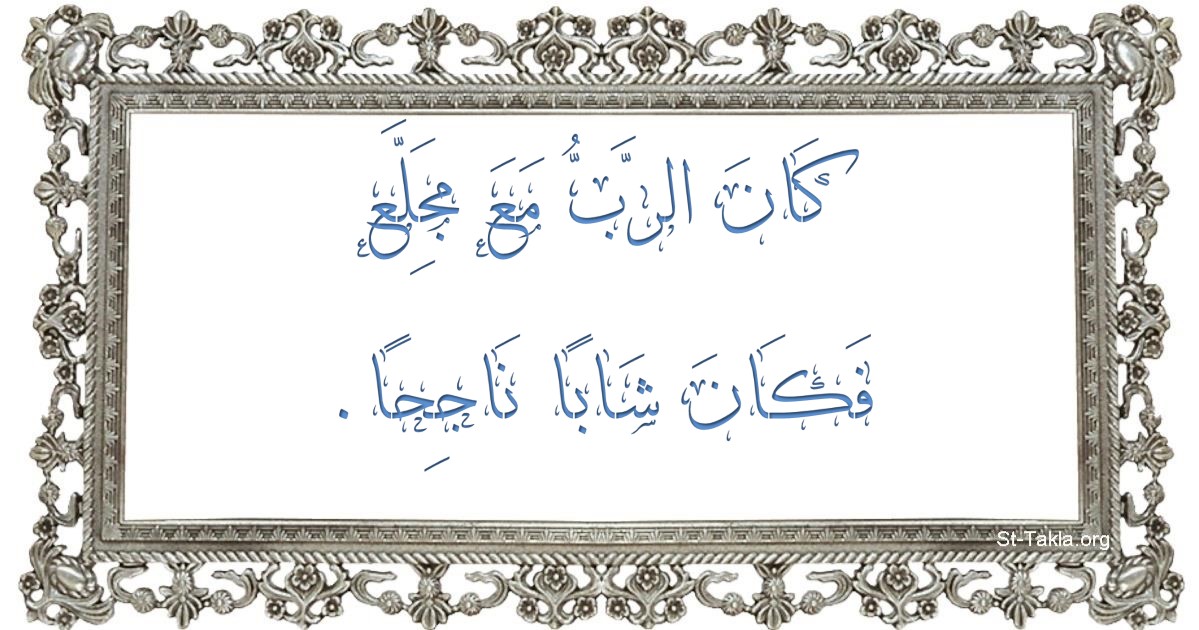 كَانَ الرَّبُّ مَعَ مجِلَّع
فَكَانَ شَابًا نَاجِحًا .
St-Takla.org